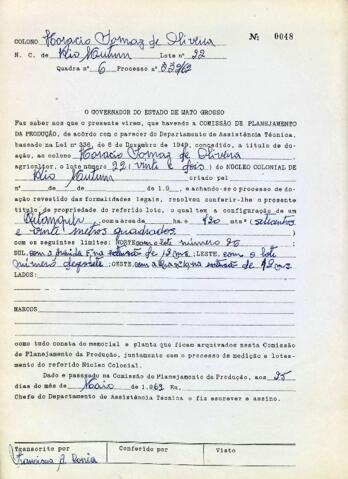 COLONO Horacio Tomaz de Oliveira Nº 0048
N. C. de Rio Mutum Lote nº 22
Quadra nº 6 Processo nº
O GOVERNADOR DO ESTADO DE MATO GROSSO
Faz saber aos que o presente virem, que havendo a COMISSÃO DE PLANEJAMENTO
DA PRODUÇÃO, de acôrdo com o parecer do Departamento de Assistência Técnica,
baseada na Lei nº 336, de 6 de Dezembro de 1949, concedido, a título de do-
ação, ao colono Horacio Tomaz de Oliveira
agricultor, o lote número 22 (vinte e dois) do NÚCLEO COLONIAL DE
Rio Mutum criado pel
nº de de de 1.9 , e achando-se o processo de do-
ação revestido das formalidades legais, resolveu conferir-lhe o presente
título de propriedade do referido lote, o qual tem a configuração de um
com a área de ha 720 mts² (setecentos
e vinte metros quadrados)
com os seguintes limites: NORTE com o lote número 20
SUL, com a Avenida F, na extensão de 12 ms; LESTE, com o lote
número dezessete; OESTE, com a na extensão de 12 ms.
LADOS:
MARCOS
como tudo consta do memorial e planta que ficam arquivados nesta Comissão
de Planejamento da Produção, juntamente com o processo de medição e lotea-
mento do referido Núcleo Colonial.
Dado e passado na Comissão de Planejamento da Produção, aos 25
dias do mês de Maio de 1.962 Eu,
Chefe do Departamento de Assistência Técnica o fiz escrever e assino.
Transcrito por Conferido por Visto
Francisca A.